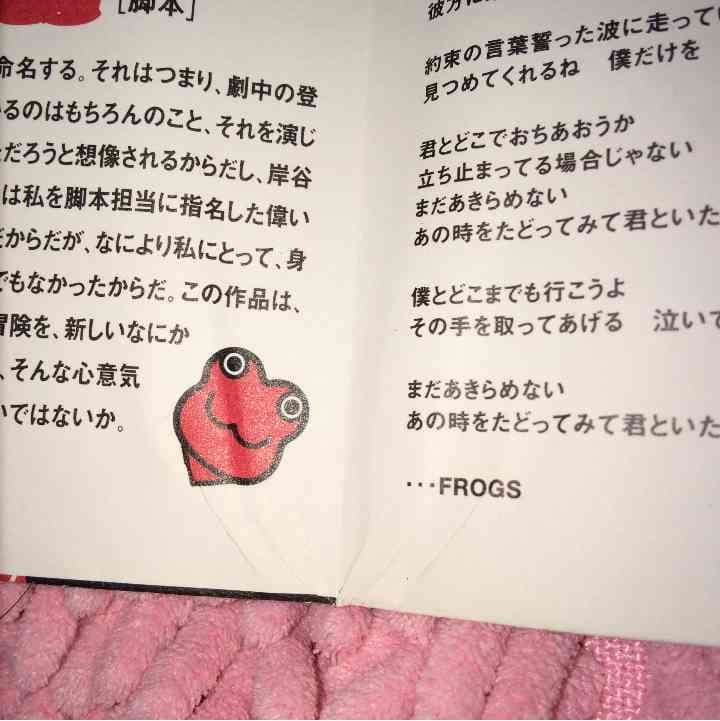 [脚本]
命名する。それはつまり、劇中の登
いるのはもちろんのこと、それを演じ
だろうと想像されるからだし、岸谷
は私を脚本担当に指名した偉い
だからだが、なにより私にとって、身
でもなかったからだ。この作品は、
冒険を、新しいなにか
、そんな心意気
いではないか。
約束の言葉誓った波に走ってい
見つめてくれるね 僕だけを
君とどこでおちあおうか
立ち止まってる場合じゃない
まだあきらめない
あの時をたどってみて君といた
僕とどこまでも行こうよ
その手を取ってあげる 泣いて
まだあきらめない
あの時をたどってみて君といた
…FROGS